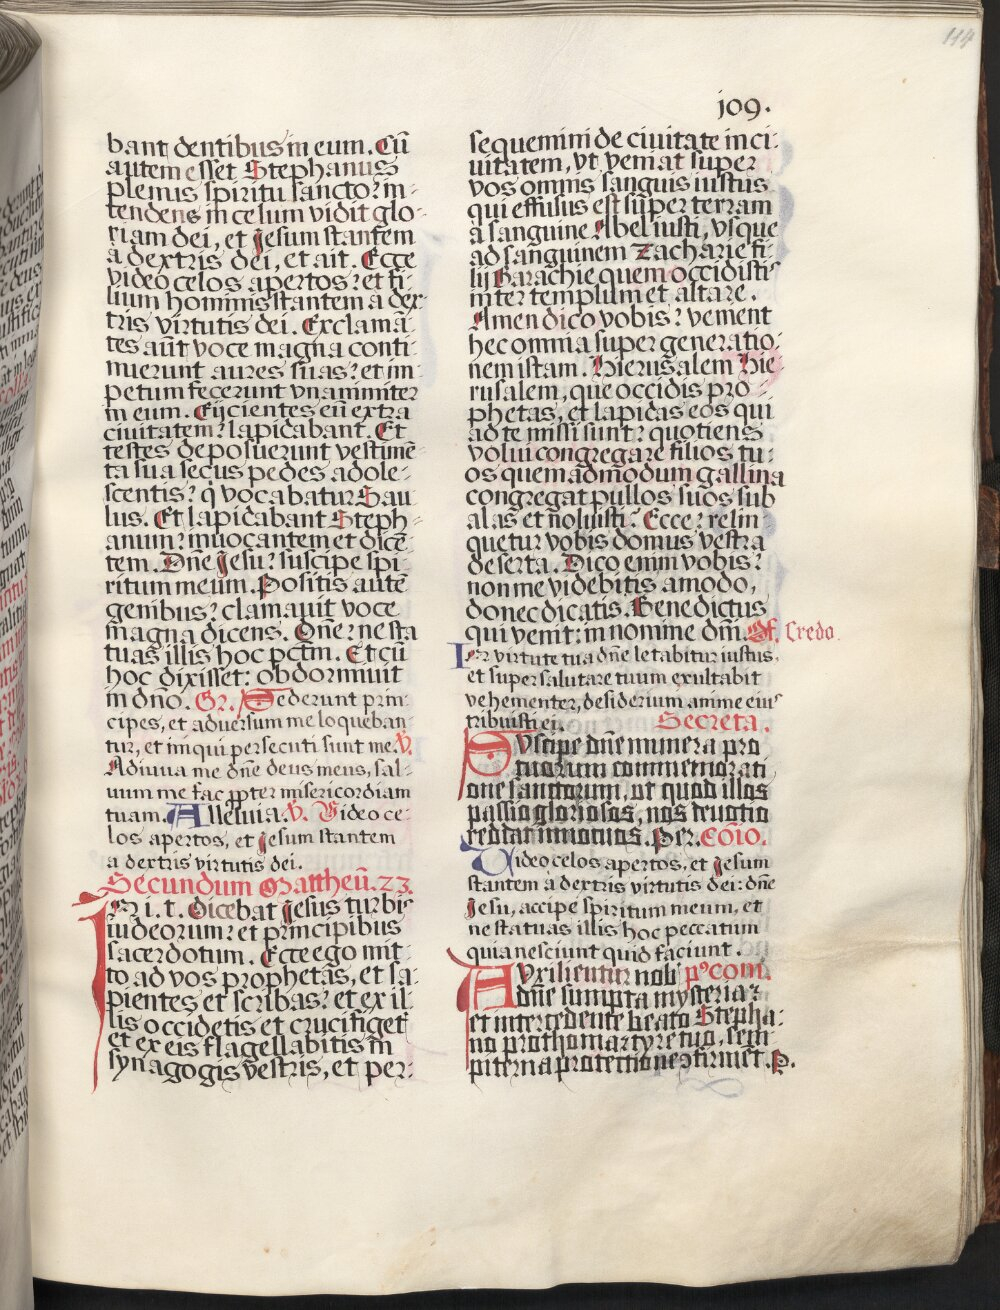 114
109.
bant dentibus in eum. Cū
autem esset Stephanus
plenus spiritu sancto: in-
tendens in celum vidit glo-
riam dei, et Jesum stantem
a dextris dei, et ait. Ecce
video celos apertos: et fi-
lium hominis stantem a dex-
tris virtutis dei. Exclamā-
tes aūt voce magna conti-
nuerunt aures suas: et im-
petum fecerunt vnanimiter
in eum. Eijcientes eū extra
civitatem: lapidabant. Et
testes deposuerunt vestimē-
ta sua secus pedes adole-
scentis: q vocabatur Sau-
lus. Et lapidabant Steph-
anum: invocantem et dicē-
tem. Dn̄e Jesu: suscipe spi-
ritum meum. Positis autē
genibus: clamavit voce
magna dicens. Dn̄e: ne sta-
tuas illis hoc pctm̄. Et cū
hoc dixisset: obdormivit
in dn̄o. Gr. Sederunt prin-
cipes, et adversum me loqueban-
tur, et iniqui persecuti sunt me. V.
Adiuva me dn̄e deus meus, sal-
vum me fac ꝓpter misericordiam
tuam. Alleluia. V. Video ce-
los apertos, et Jesum stantem
a dextris virtutis dei.
Secundum Mattheū. 23.
IN i. t. Dicebat Jesus turbis
iudeorum: et principibus
sacerdotum. Ecce ego mit-
to ad vos prophetas, et sa-
pientes et scribas: et ex il-
lis occidetis et crucifiget'
et ex eis flagellabitis in
synagogis vestris, et per-
sequemini de civitate in ci-
vitatem, vt veniat super
vos omnis sanguis iustus
qui effusus est super terram
a sanguine Abel iusti, vsque
ad sanguinem Zacharie fi-
lij Barachie quem occidistis
inter templum et altare.
Amen dico vobis: venient
hec omnia super generatio-
nem istam. Hierusalem Hie-
rusalem, que occidis pro-
phetas, et lapidas eos qui
ad te missi sunt: quotiens
volui congregare filios tu-
os quemadmodum gallina
congregat pullos suos sub
alas et noluisti? Ecce: relin-
quetur vobis domus vestra
deserta. Dico enim vobis:
non me videbitis amodo,
donec dicatis. Benedictus
qui venit: in nomine dn̄i. Of. Credo.
In virtute tua dn̄e letabitur iustus,
et super salutare tuum exultabit
vehementer, desiderium anime eius
tribuisti ei. Secreta.
Suscipe dn̄e munera pro
tuorum commemorati-
one sanctorum, ut quod illos
passio gloriosos, nos devotio
reddat innocuos. Per. Cōio.
Video celos apertos, et Jesum
stantem a dextris virtutis dei: dn̄e
Jesu, accipe spiritum meum, et
ne statuas illis hoc peccatum
quia nesciunt quid faciunt.
Auxilientur nob' p9com.
dn̄e sumpta mysteria:
et intercedente beato Stepha-
no prothomartyre tuo, sempi-
piterna protectione ꝯfirmēt. P.